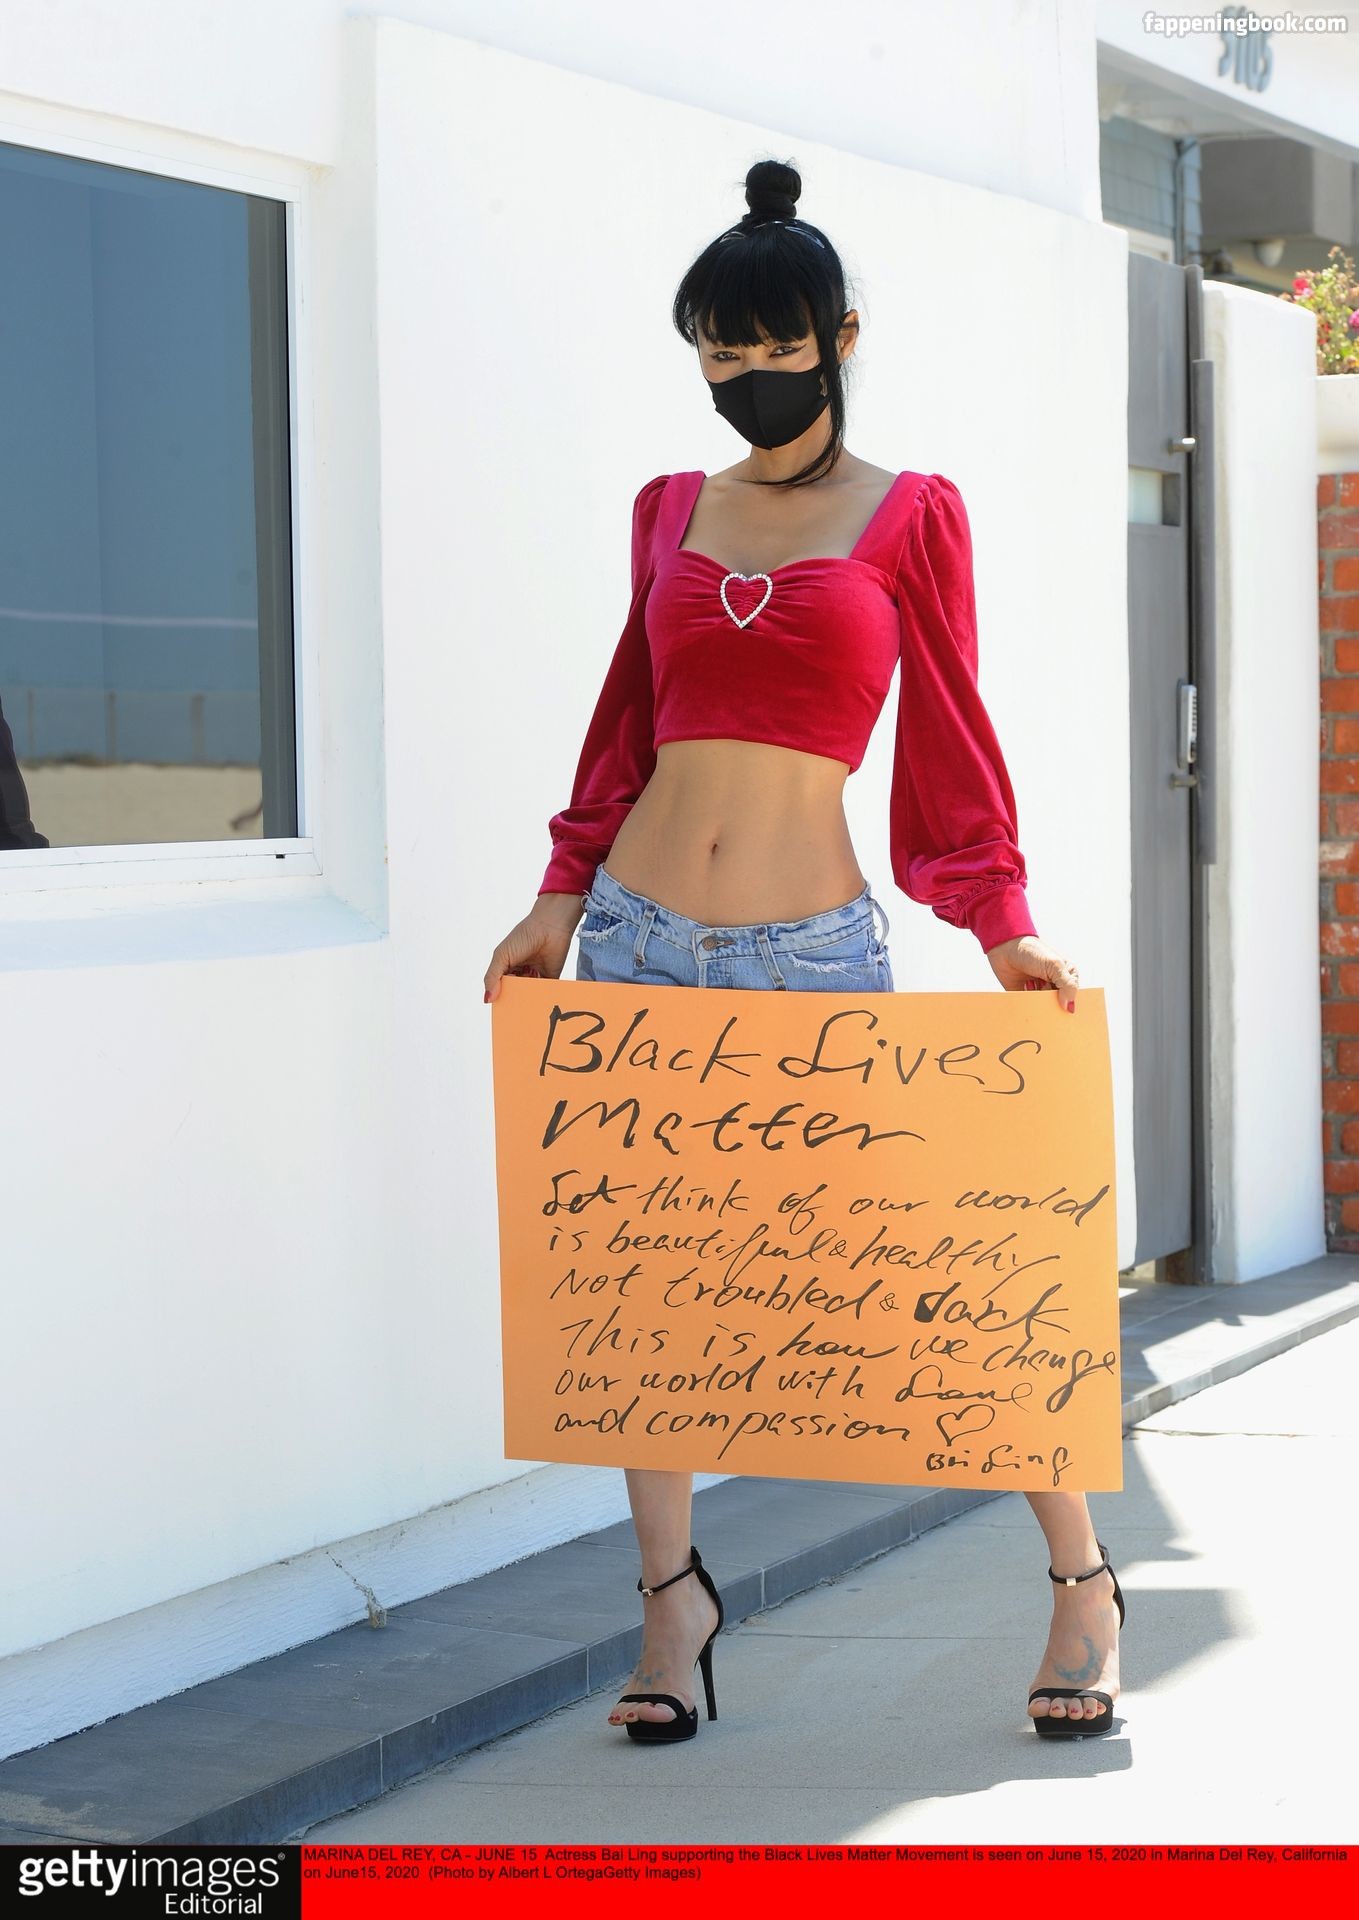 fappeningbook.com
5105
Black Lives
Matter
Let think of our world
is beautiful & healthy
Not troubled & dark
This is how we change
our world with Love
and compassion ♡
Bai Ling
gettyimages®
Editorial
MARINA DEL REY, CA - JUNE 15 Actress Bai Ling supporting the Black Lives Matter Movement is seen on June 15, 2020 in Marina Del Rey, California
on June15, 2020 (Photo by Albert L OrtegaGetty Images)